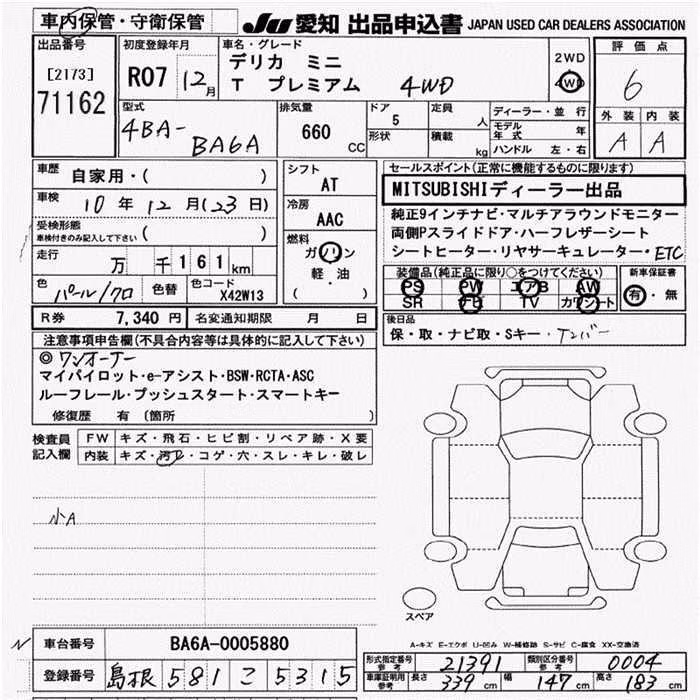 車内保管・守衛保管
JU 愛知 出品申込書 JAPAN USED CAR DEALERS ASSOCIATION
出品番号
[2173]
71162
初度登録年月
R07 12月
車名・グレード
デリカ ミニ
T プレミアム 4WD
2WD
4WD
評価点
6
外装 内装
A A
型式
4BA-BA6A
排気量
660 CC
ドア
5
形状
定員
人
積載
kg
ディーラー・並行
モデル年式 年
ハンドル 左・右
車歴
自家用・( )
車検
10年12月(23日)
受検形態
車検付きのみ記入して下さい ( )
走行
万 千161km
色
パール/クロ
色替
色コード
X42W13
シフト
AT
冷房
AAC
燃料
ガソリン
軽・油
( )
R券 7,340円
名変通知期限 月 日
セールスポイント(正常に機能するものに限ります)
MITSUBISHIディーラー出品
純正9インチナビ・マルチアラウンドモニター
両側Pスライドドア・ハーフレザーシート
シートヒーター・リヤサーキュレーター・ETC
装備品(純正品に限り○をつけてください)
PS PW エアB AW
SR ナビ TV カワシート
新車保証書
有・無
後日品
保・取・ナビ取・Sキー・ナンバー
注意事項申告欄(不具合内容等は具体的に記入して下さい)
◎ワンオーナー
マイパイロット・e-アシスト・BSW・RCTA・ASC
ルーフレール・プッシュスタート・スマートキー
修復歴 有(箇所 )
検査員記入欄
FW キズ・飛石・ヒビ割・リペア跡・X要
内装 キズ・汚レ・コゲ・穴・スレ・キレ・破レ
小A
スペア
A-キズ E-エクボ U-凹み W-補修跡 S-サビ C-腐食 XX-交換済
車台番号 BA6A-0005880
登録番号 島根 581 こ 5315
形式指定番号参考 21391
類別区分番号参考 0004
車庫証明用参考 長さ 339cm 幅 147cm 高さ 183cm